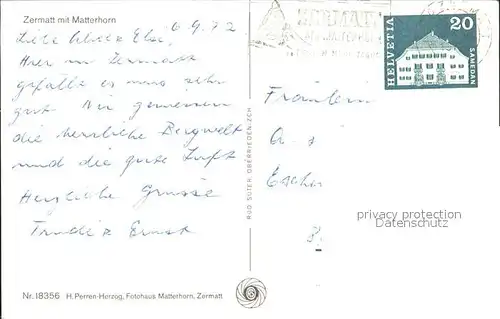 Zermatt mit Matterhorn
6.9.72
Liebe Else,
Hier in Zermatt
gefällt es uns sehr
gut. Wir geniessen
die herrliche Bergwelt
und die gute Luft
Herzliche Grüsse
Trudi & Ernst
Nr. 18356 H. Perren-Herzog, Fotohaus Matterhorn, Zermatt
RUD. SUTER OBERRIEDEN-ZCH
HELVETIA 20
SAMEDAN
Fräulein
privacy protection
Datenschutz